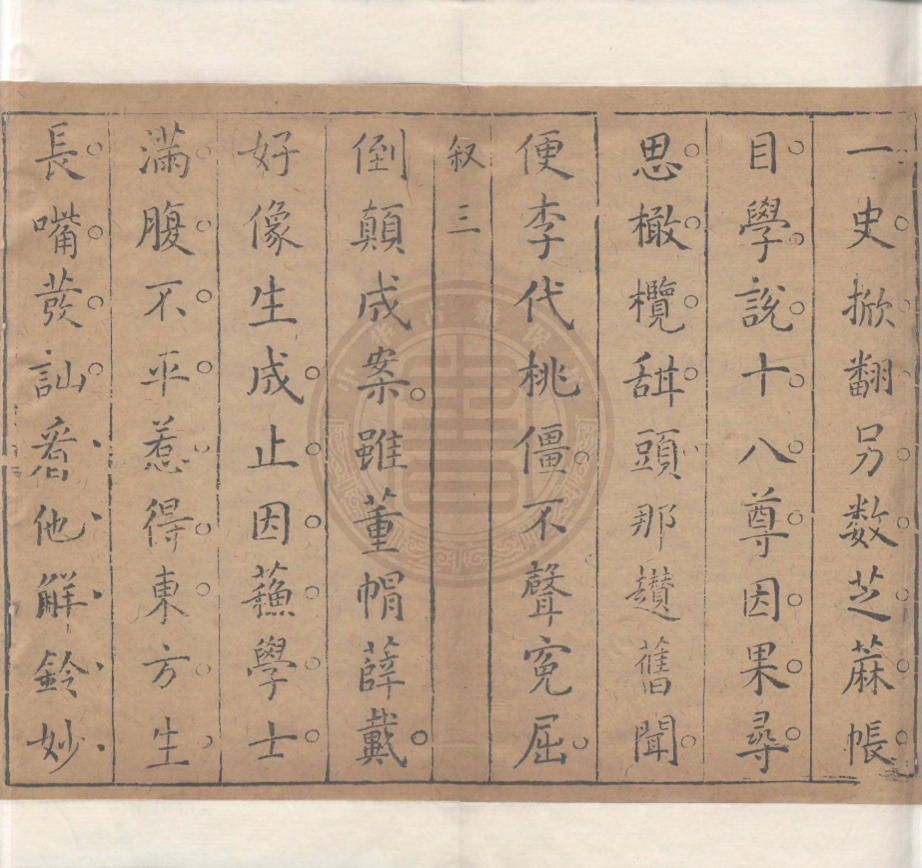 一史掀翻另数芝蔴帳
目學說十八尊因果尋
思橄欖甜頭那趲舊聞
便李代桃僵不聲寃屈
叙三
倒顛成案雖董帽薛戴
好像生成止因蘓學士
滿腹不平惹得東方生
長嘴發訕看他解鈴妙